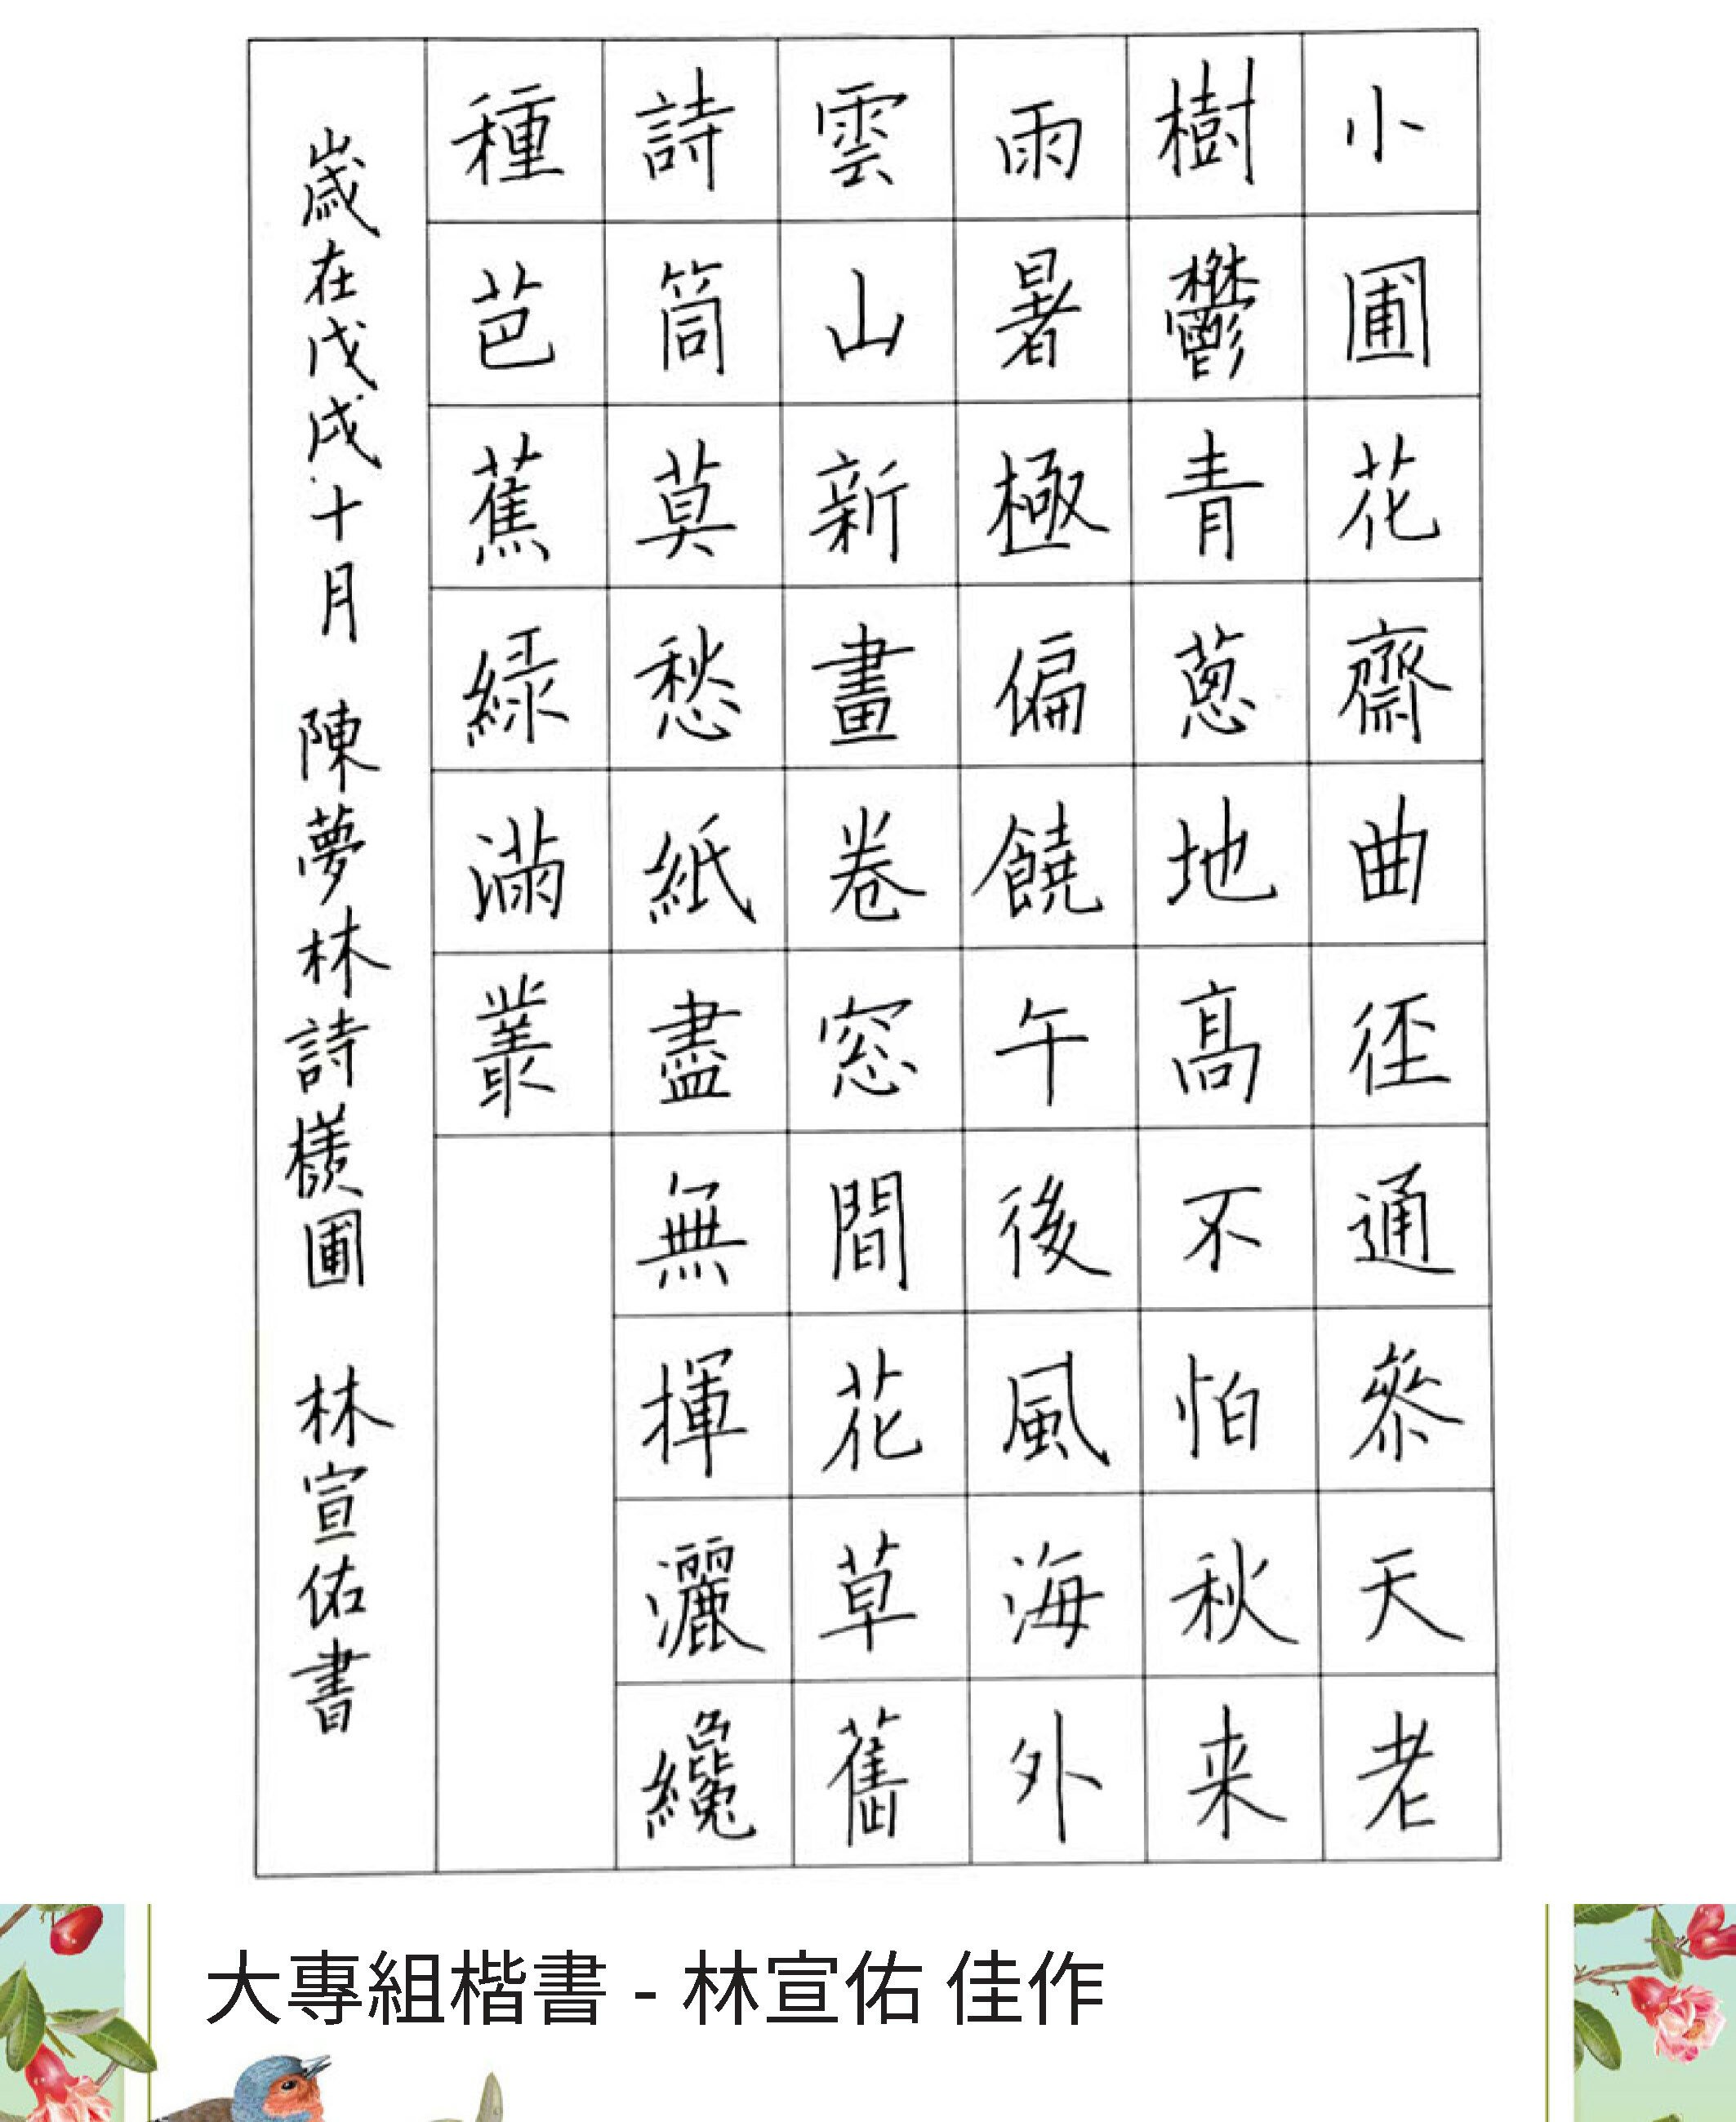 小圃花齋曲徑通參天老
樹鬱青蔥地高不怕秋来
雨暑極偏饒午後風海外
雲山新畫卷窓間花草舊
詩筒莫愁紙盡無揮灑纔
種芭蕉綠滿叢
歲在戊戌十月 陳夢林詩檨圃 林宣佑書
大專組楷書 - 林宣佑 佳作